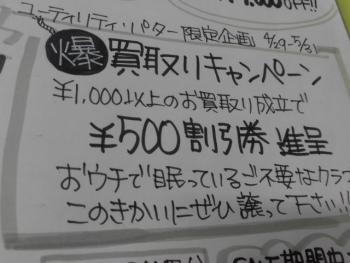 ,000OFF!!
ユーティリティ・パター限定企画 4/29-5/31
爆買取りキャンペーン
¥1,000以上のお買取り成立で
¥500割引券 進呈
おウチで眠っているご不要なクラブ
このきかいにぜひ譲って下さい!!